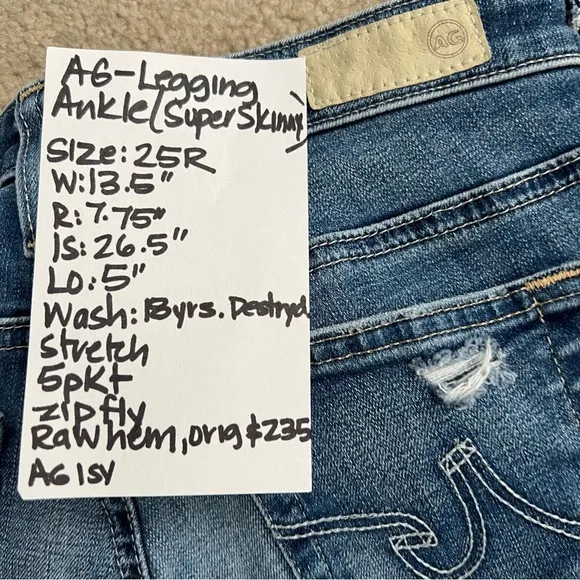 AG-Legging
Ankle (Super Skinny)
Size: 25R
W: 13.5"
R: 7.75"
IS: 26.5"
LO: 5"
Wash: 13yrs. Destryed
Stretch
5pkt
zip fly
Raw hem, orig $235
AG ISY
AG